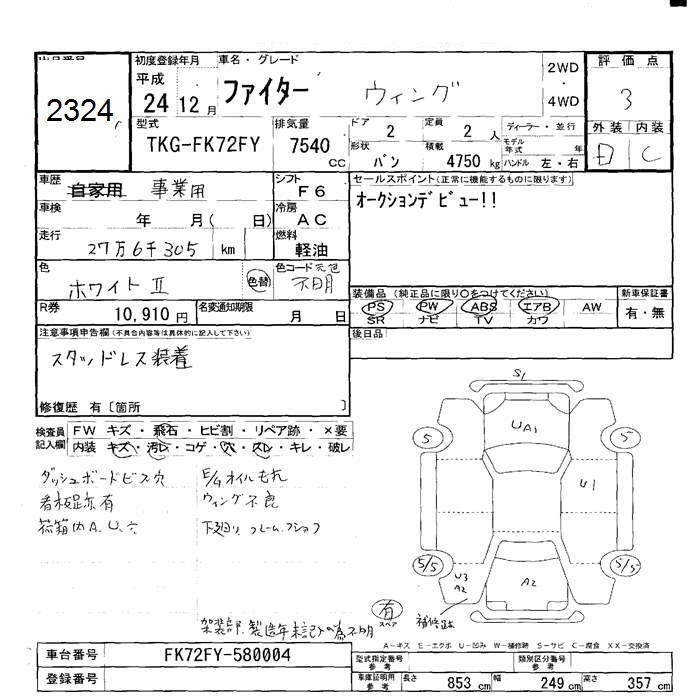 出品番号
2324
初度登録年月
平成
24 12 月
車名・グレード
ファイター ウィング
2WD
・
4WD
評価点
3
型式
TKG-FK72FY
排気量
7540 CC
ドア
2
定員
2 人
形状
バン
積載
4750 kg
ディーラー・並行
モデル年式 年
ハンドル 左・右
外装 内装
D C
車歴
自家用 事業用
シフト
F6
車検
年 月( 日)
冷房
AC
走行
27万6千305 km
燃料
軽油
セールスポイント(正常に機能するものに限ります)
オークションデビュー!!
色
ホワイトⅡ 色替
色コード 元色
不明
R券
10,910 円
名変通知期限
月 日
装備品(純正品に限り○をつけてください)
PS PW ABS エアB AW
SR ナビ TV カワ
新車保証書
有・無
後日品
注意事項申告欄(不具合内容等は具体的に記入して下さい)
スタッドレス装着
修復歴 有〔箇所 〕
検査員記入欄
FW キズ・飛石・ヒビ割・リペア跡・×要
内装 キズ・汚レ・コゲ・穴・スレ・キレ・破レ
ダッシュボードビス穴
看板跡有
荷箱内A.U.穴
E/Gオイルもれ
ウィング不良
下廻り フレームフショク
架装部、製造年未記入の為不明
S1
UA1
5
5
U1
5/5
5/5
U3
A2
A2
有
スペア
補修跡
A－キズ E－エクボ U－凹み W－補修跡 S－サビ C－腐食 XX－交換済
車台番号
FK72FY-580004
登録番号
型式指定番号
参考
類別区分番号
参考
車庫証明用
参考
長さ 853 cm 幅 249 cm 高さ 357 cm